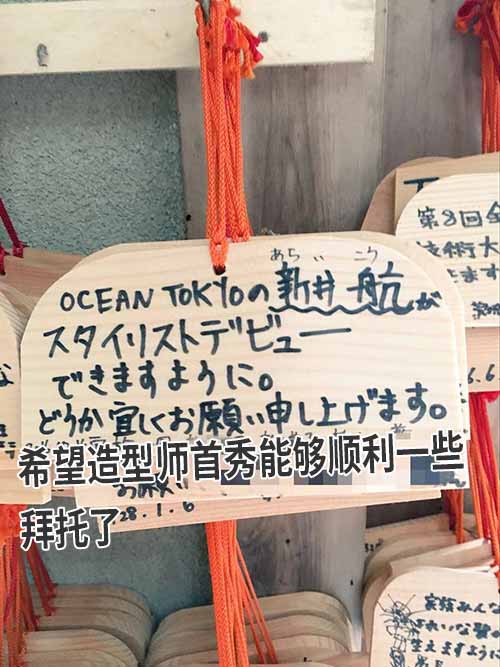 OCEAN TOKYOの新井航が
あらい こう
スタイリストデビュー
できますように。
どうか宜しくお願い申し上げます。
希望造型师首秀能够顺利一些
拜托了
28.1.6
第8回全
技術大
きます
6.6
家族みんな
きれいな
生えますように